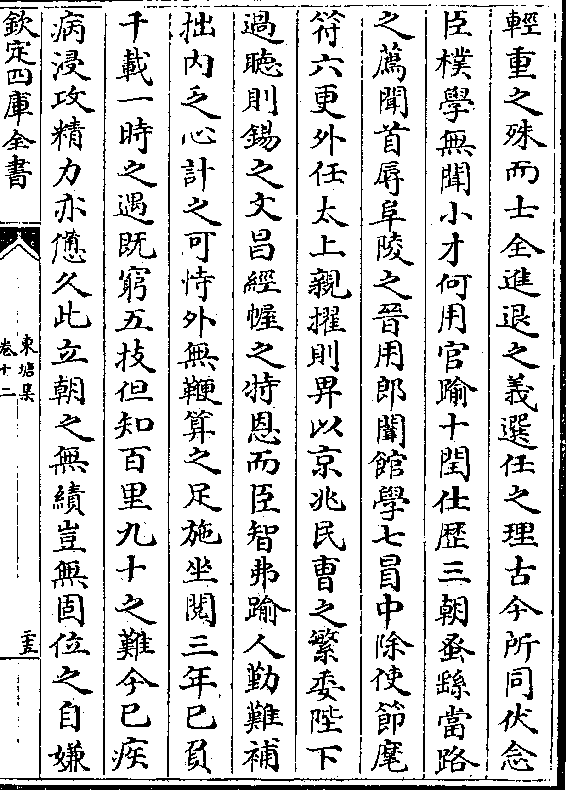 輕重之殊而士全進退之義選任之理古今所同伏念
臣樸學無聞小才何用官踰十閏仕歷三朝蚤繇當路
之薦聞首辱阜陵之晉用郎闈館學七冒中除使節麾
符六更外任太上親擢則畀以京兆民曹之繁委陛下
過聽則錫之文昌經幄之特恩而臣智弗踰人勤難補
拙內乏心計之可恃外無鞭算之足施坐閱三年已負
千載一時之遇既窮五技但知百里九十之難今已疾
病浸攻精力亦憊久此立朝之無績豈無固位之自嫌
欽定四庫全書
東塘集
卷十二